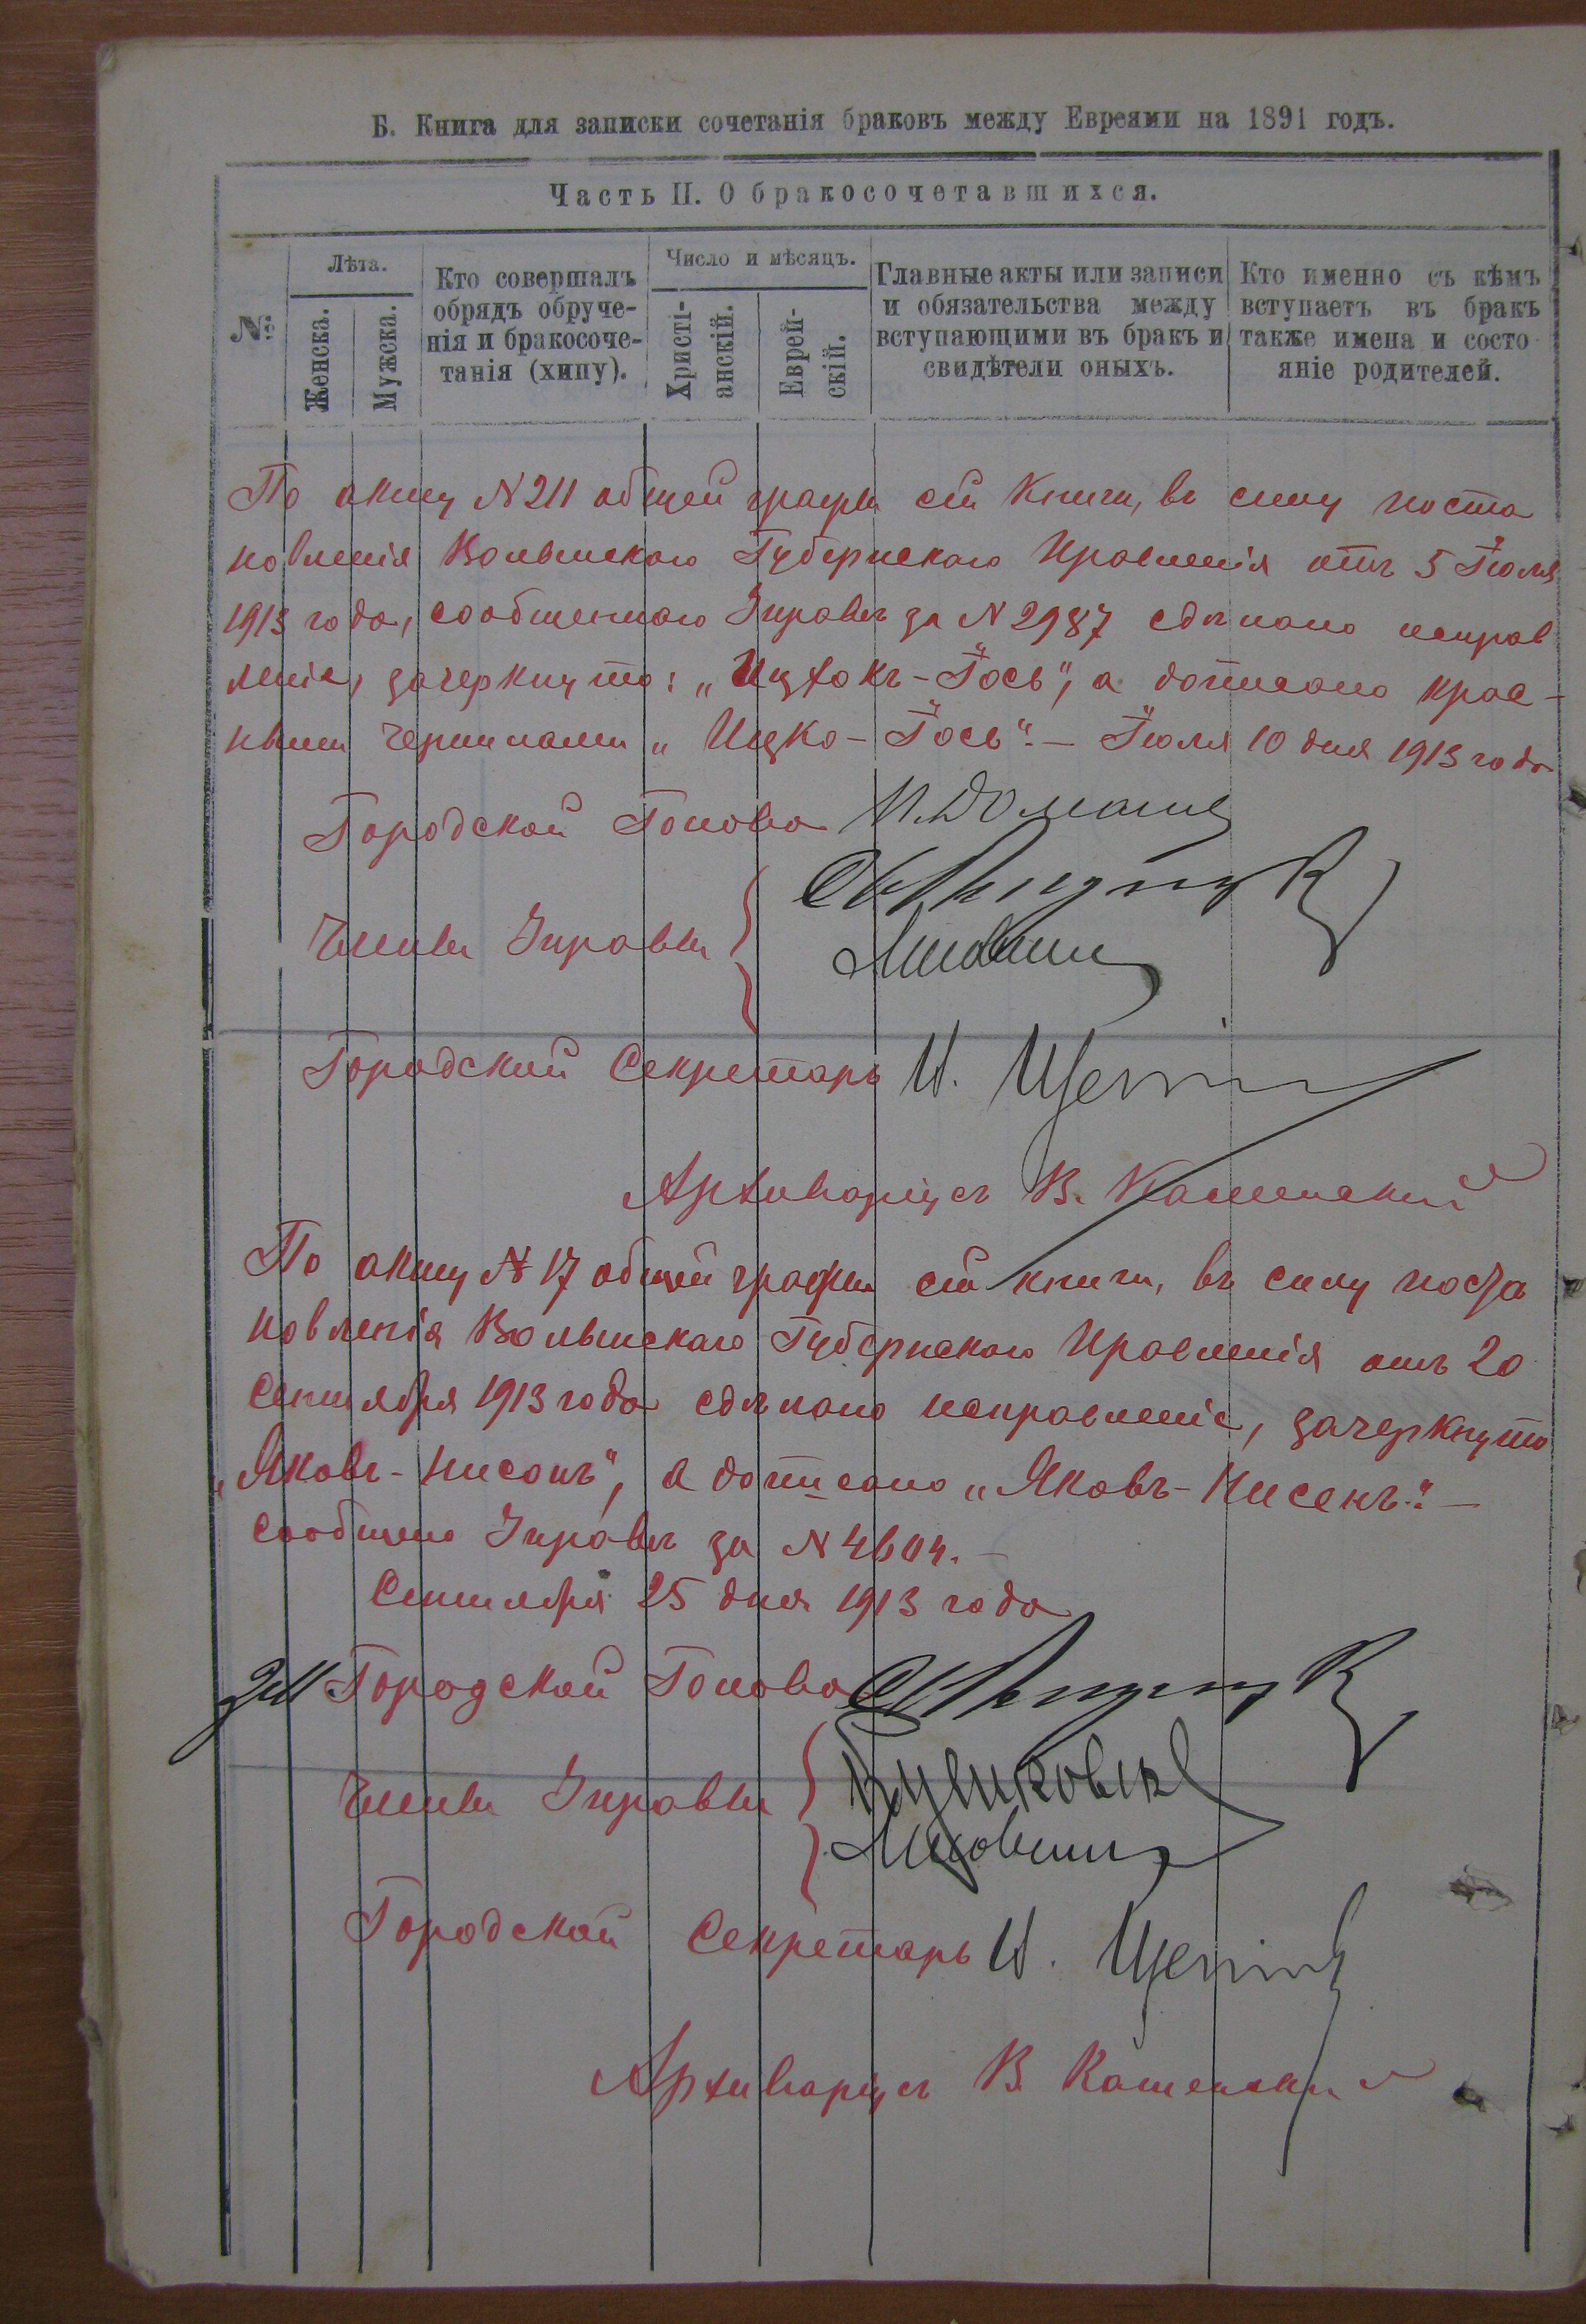 Б. Книга для записки сочетанія браковъ между Евреями на 1891 годъ.
Часть II. О бракосочетавшихся.
№
Лѣта.
Женска.
Мужска.
Кто совершалъ
обрядъ обруче-
нія и бракосоче-
танія (хипу).
Число и мѣсяцъ.
Христі-
анскій.
Еврей-
скій.
Главные акты или записи
и обязательства между
вступающими въ бракъ и
свидѣтели оныхъ.
Кто именно съ кѣмъ
вступаетъ въ бракъ
также имена и состо
яніе родителей.
По акту N 211 общей графы сей Книги, въ силу поста
новленія Волынскаго Губернскаго Правленія отъ 5 Іюля
1913 года, сообщеннаго Управѣ за N 2987 сдѣлано исправ
леніе, зачеркнуто: „Ицхокъ-Іось", а дописано крас-
ными чернилами „Ицко-Іось". – Іюля 10 дня 1913 года
Городской Голова
Члены Управы
Городской Секретарь И.
Архиваріусъ В. Каменскій
По акту № 17 общей графы сей книги, въ силу поста
новленія Волынскаго Губернскаго Правленія отъ 20
Сентября 1913 года сдѣлано исправленіе, зачеркнуто
„Яковъ-Нисонъ", а дописано „Яковъ-Нисенъ". –
Сообщено Управѣ за N 4604. –
Сентября 25 дня 1913 года
Городской Голова
Члены Управы
Городской Секретарь И.
Архиваріусъ В. Каменскій